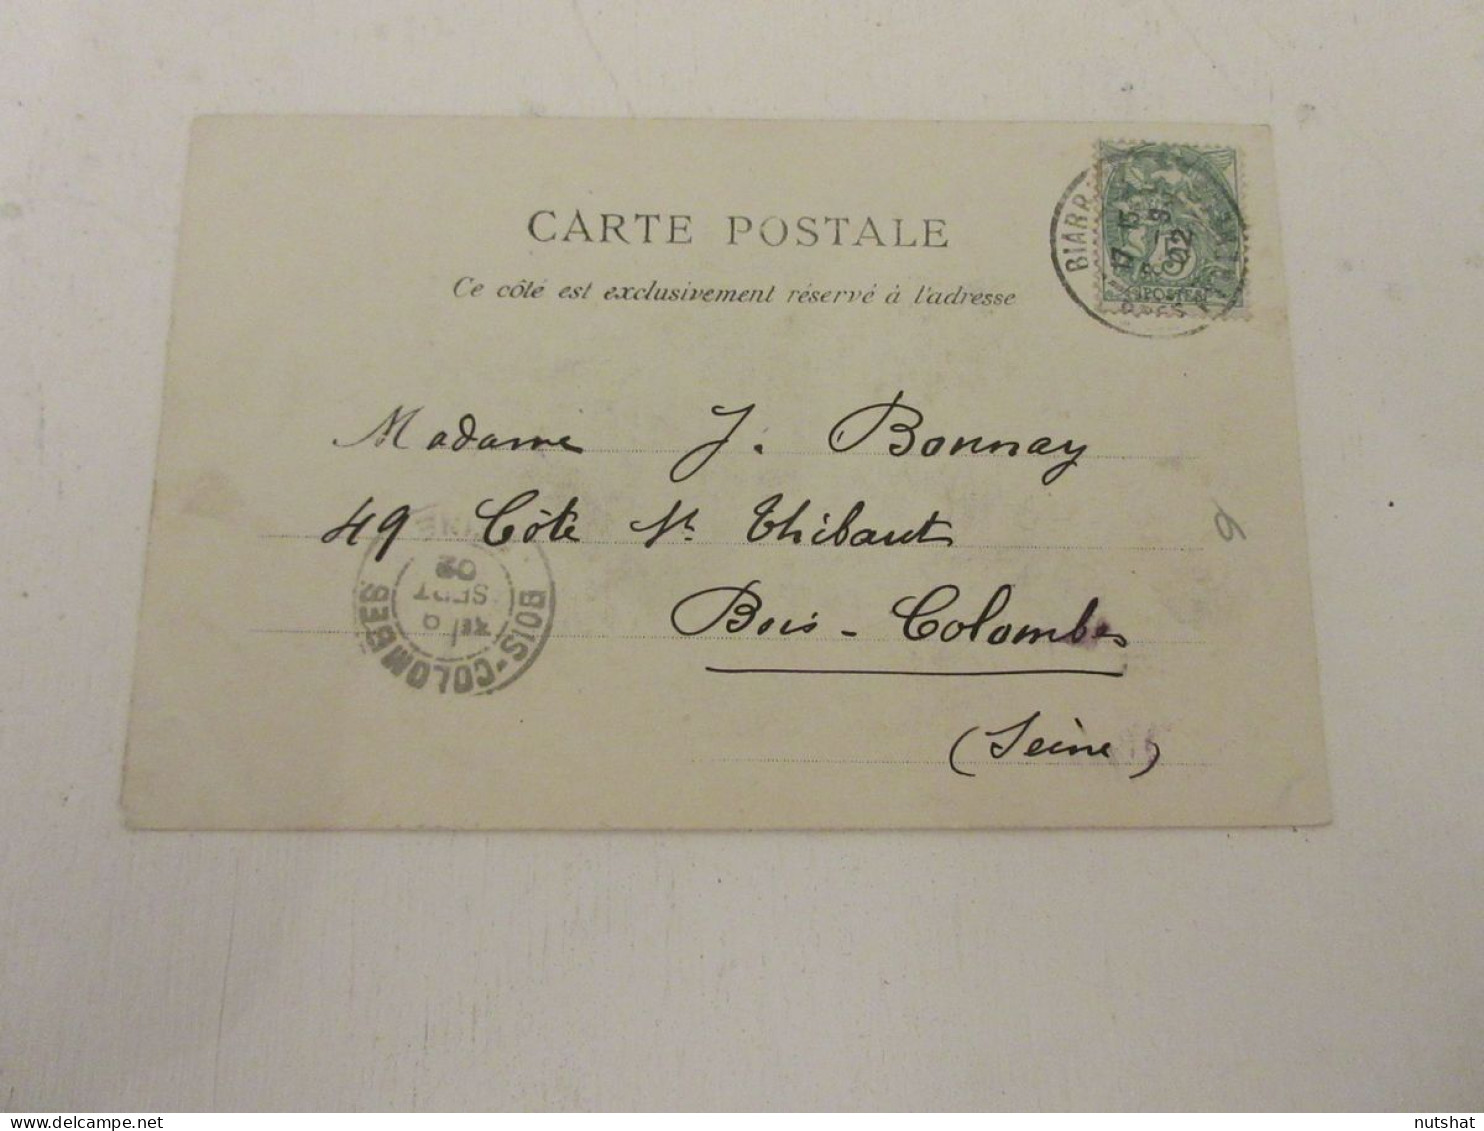 CARTE POSTALE
Ce côté est exclusivement réservé à l'adresse
BIARR
17 15
5
POSTES
Madame J. Bonnay
49 Côte St Thibaut
Bois-Colombes
(Seine)
BOIS-COLOMBES
SEPT
02
6
nutshat